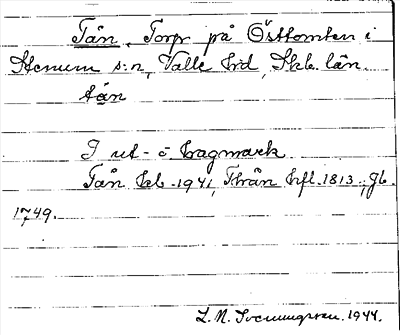 Tån, Torp på Östtomten i
Stenum s:n, Valle hd, Skb. län.
tån
I ut- o. hagmark
Tån kb. 1941, Thrån hfl. 1813, Jb.
1749.
L. N. Svenungsson. 1944.